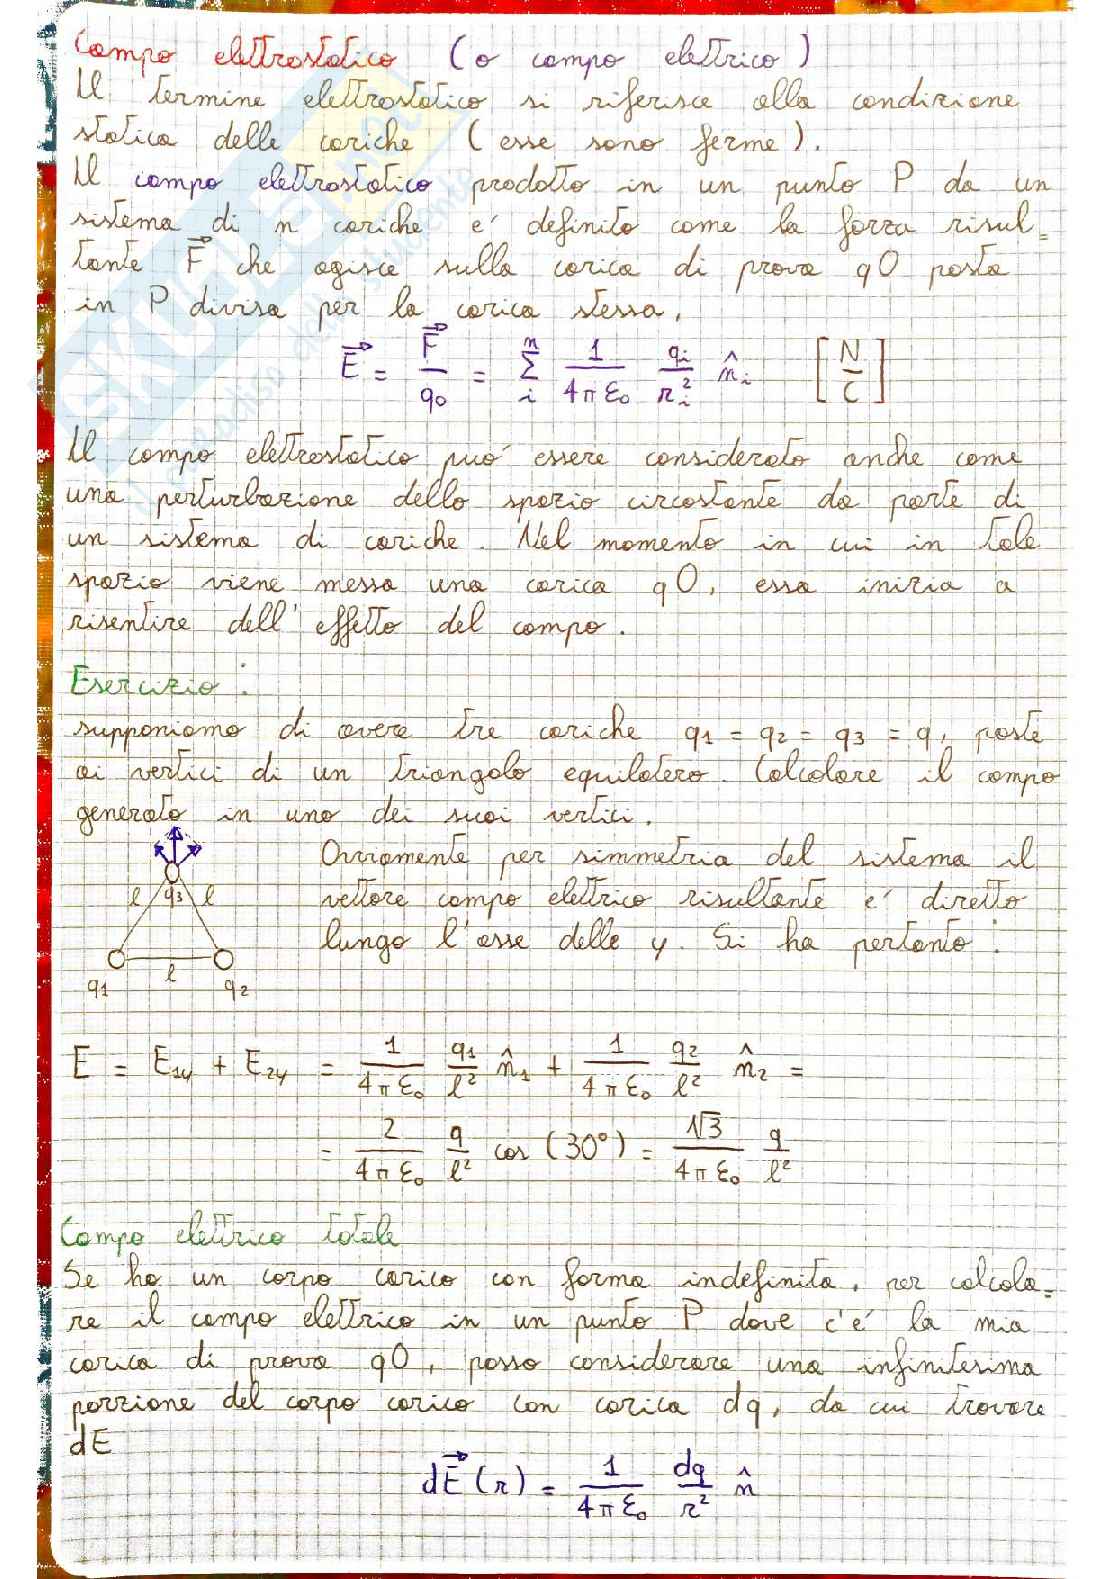 Campo elettrostatico (o campo elettrico)
Il termine elettrostatico si riferisce alla condizione
statica delle cariche (esse sono ferme).
Il campo elettrostatico prodotto in un punto P da un
sistema di n cariche e' definito come la forza risul=
tante F⃗ che agisce sulla carica di prova q0 posta
in P divisa per la carica stessa.
E⃗ = F⃗/q₀ = Σᵢⁿ 1/(4πε₀) qᵢ/rᵢ² n̂ᵢ [N/C]
Il campo elettrostatico puo' essere considerato anche come
una perturbazione dello spazio circostante da parte di
un sistema di cariche. Nel momento in cui in tale
spazio viene messa una carica q0, essa inizia a
risentire dell'effetto del campo.
Esercizio:
supponiamo di avere tre cariche q₁ = q₂ = q₃ = q, poste
ai vertici di un triangolo equilatero. Calcolare il campo
generato in uno dei suoi vertici.
Ovviamente per simmetria del sistema il
vettore campo elettrico risultante e' diretto
lungo l'asse delle y. Si ha pertanto:
l q₃ l
l
q₁ q₂
E = E₁y + E₂y = 1/(4πε₀) q₁/l² n̂₁ + 1/(4πε₀) q₂/l² n̂₂ =
= 2/(4πε₀) q/l² cos(30°) = √3/(4πε₀) q/l²
Campo elettrico totale
Se ho un corpo carico con forma indefinita, per calcola=
re il campo elettrico in un punto P dove c'e' la mia
carica di prova q0, posso considerare una infinitesima
porzione del corpo carico con carica dq, da cui trovare
dE
dE⃗(r) = 1/(4πε₀) dq/r² n̂
SKUOLA.net